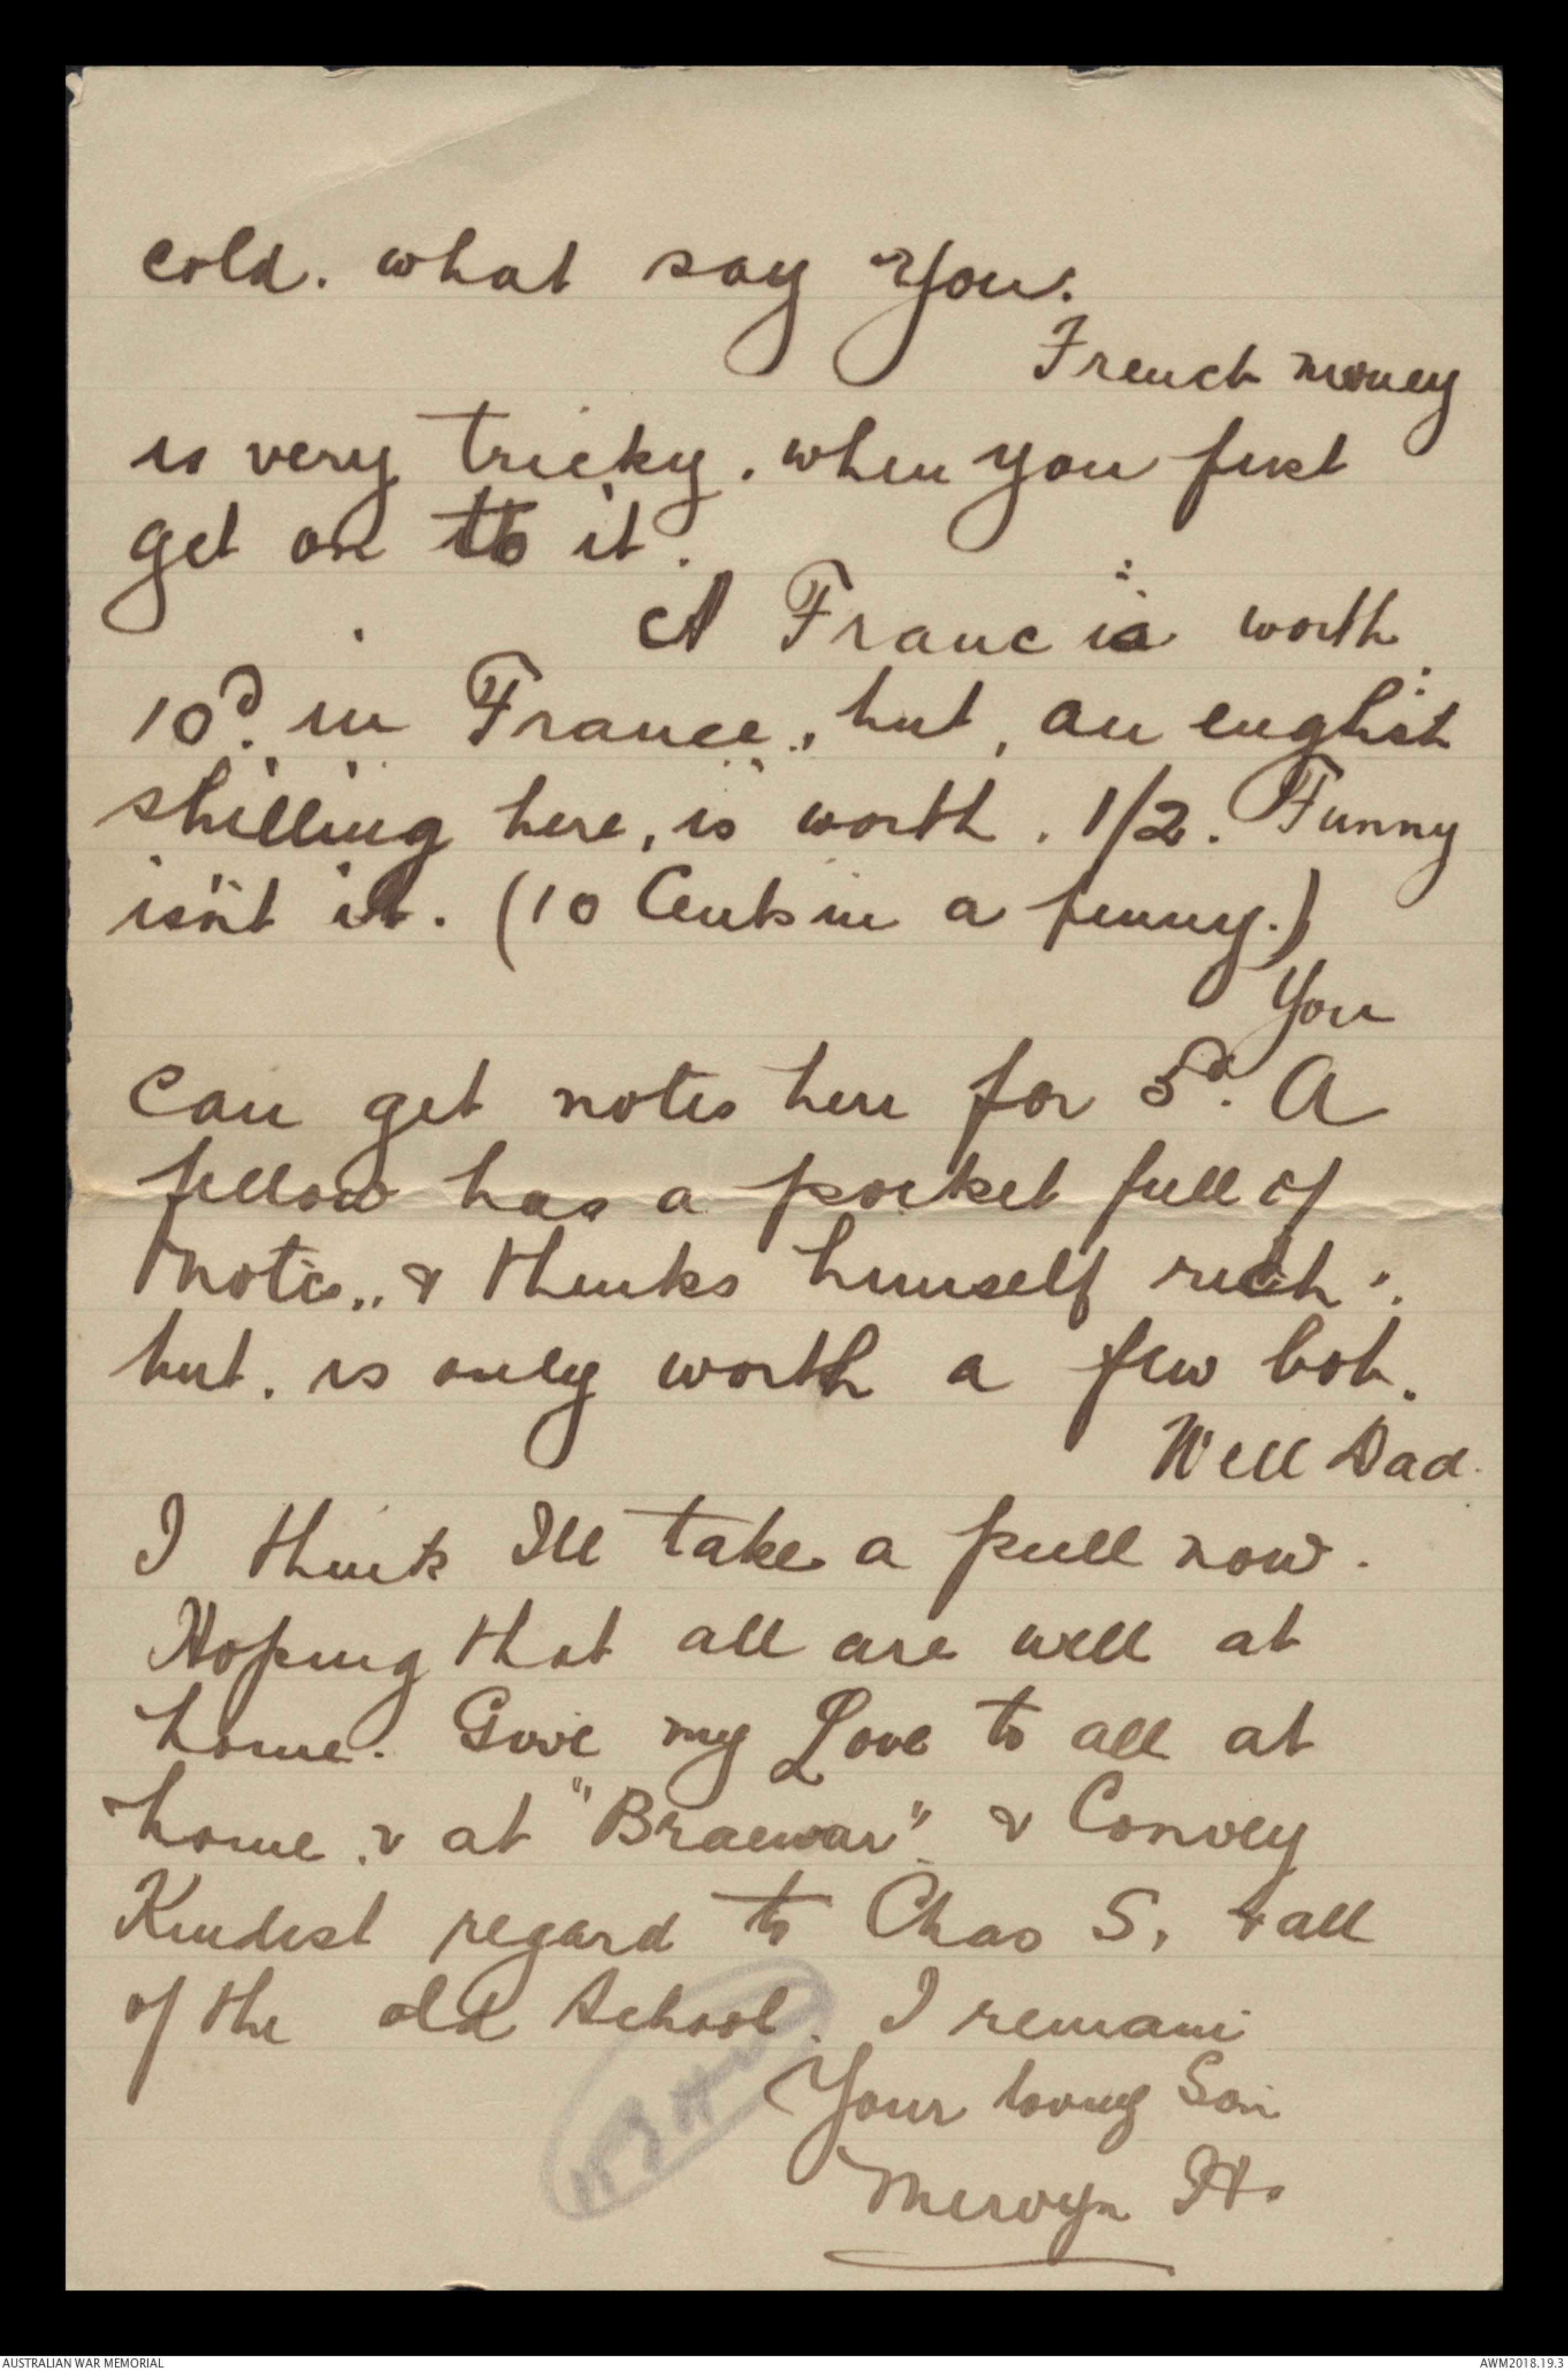 cold. what say You.
French money
is very tricky. when you first
get on to it.
A Franc is worth
10d. in France, but, an english
shilling here, is worth. 1/2. Funny
isn't it. (10 Cents in a penny.)
You
can get notes here for 5d. A
fellow has a pocket full of
notes, & thinks himself rich.
but. is only worth a few bob.
Well Dad.
I think Ill take a pull now.
Hoping that all are well at
home. Give my Love to all at
home. & at "Braemar" & Convey
Kindest regard to Chas S, & all
of the old School. I remain
Your loving Son
Mervyn H.
AUSTRALIAN WAR MEMORIAL
AWM2018.19.3